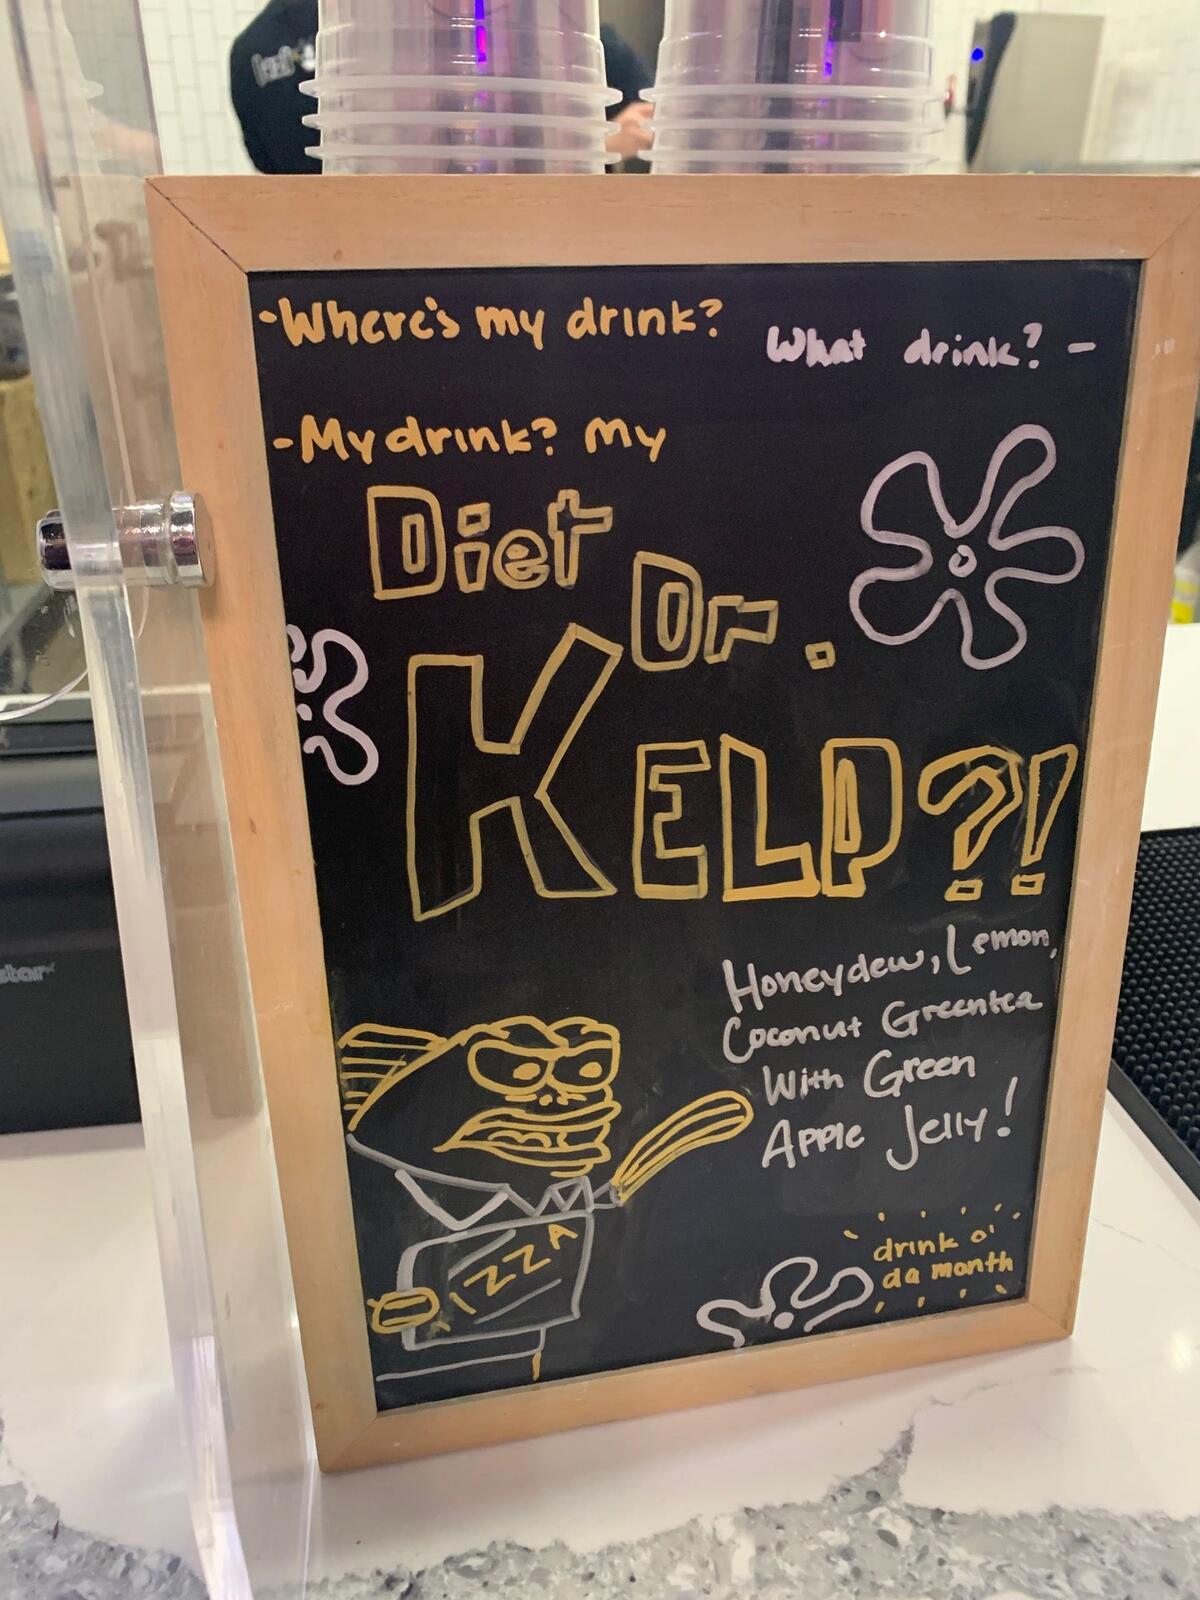 -Where's my drink?
What drink? -
-My drink? My
Diet
Dr.
KELP?!
Honeydew, Lemon,
Coconut Greentea
With Green
Apple Jelly!
drink o'
da month
PIZZA
star